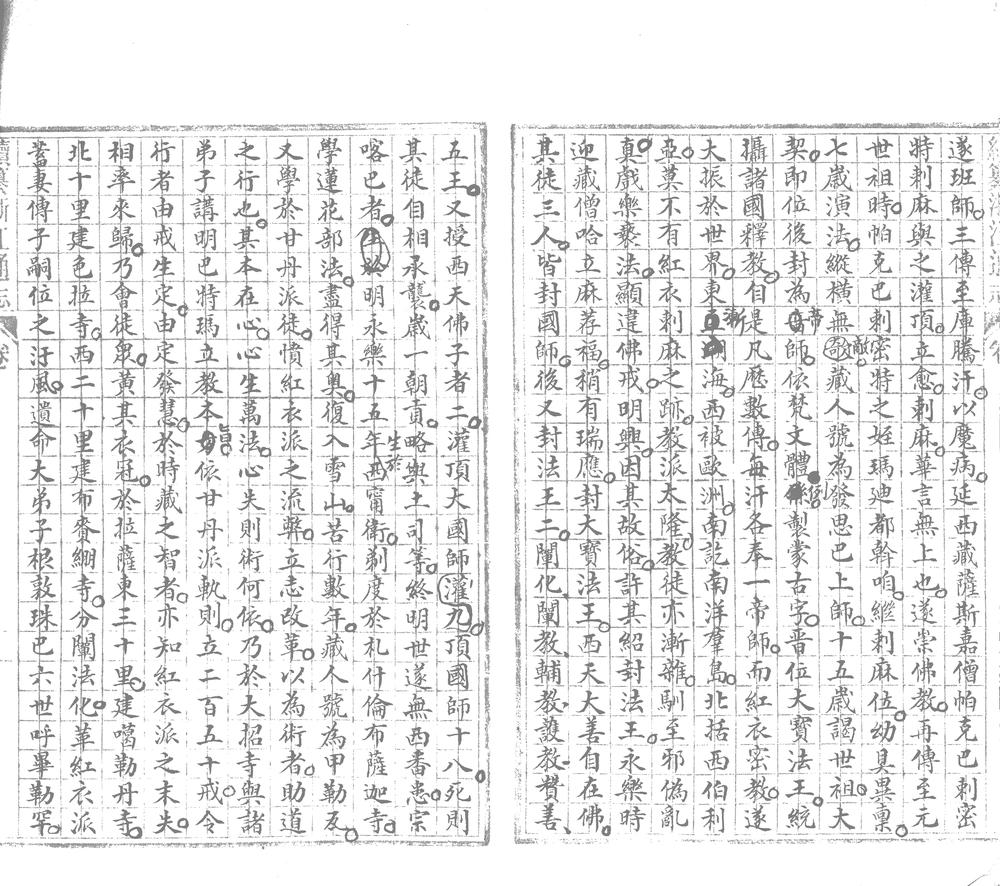 遂班師三傳至庫騰汗以魔病延西藏薩斯嘉僧帕克巴剌密
特剌麻與之灌頂立愈剌麻華言無上也遂崇佛教再傳至元
世祖時帕克巴剌密特之姪瑪廸都幹咱繼剌麻位幼具異稟
七歲演法縱橫無敵藏人號為發思巴上師十五歲謁世祖大
契即位後封為帝師依梵文體例製蒙古字晋位大寶法王統
攝諸國釋教自是凡歷數傳每汗各奉一帝師而紅衣密教遂
大振於世界東漸海西被歐洲南訖南洋羣島北括西伯利
亞莫不有紅衣剌麻之跡教派太隆教徒亦漸雜馴至邪偽亂
真戲樂褻法顯違佛戒明興因其故俗許其紹封法王永樂時
迎藏僧哈立麻荐福稍有瑞應封大寶法王西天大善自在佛
其徒三人皆封國師後又封法王二闡化闡教輔教護教贊善
五王又授西天佛子者二灌頂大國師九灌頂國師十八死則
其徒自相承襲歲一朝貢略與土司等終明世遂無西番患宗
喀巴者明永樂十五年生於西甯衛剃度於札什倫布薩迦寺
學蓮花部法盡得其奧復入雪山苦行數年藏人號為甲勒瓦
又學於甘丹派徒憤紅衣派之流弊立志改革以為術者助道
之行也其本在心心生萬法心失則術何依乃於大招寺與諸
弟子講明巴特瑪立教本旨依甘丹派軌則立二百五十戒令
行者由戒生定由定發慧於時藏之智者亦知紅衣派之末失
相率來歸乃會徒眾黃其衣冠於拉薩東三十里建噶勒丹寺
北十里建色拉寺西二十里建布賚繃寺分闡法化革紅衣派
蓄妻傳子嗣位之汙風遺命大弟子根敦珠巴六世呼畢勒罕